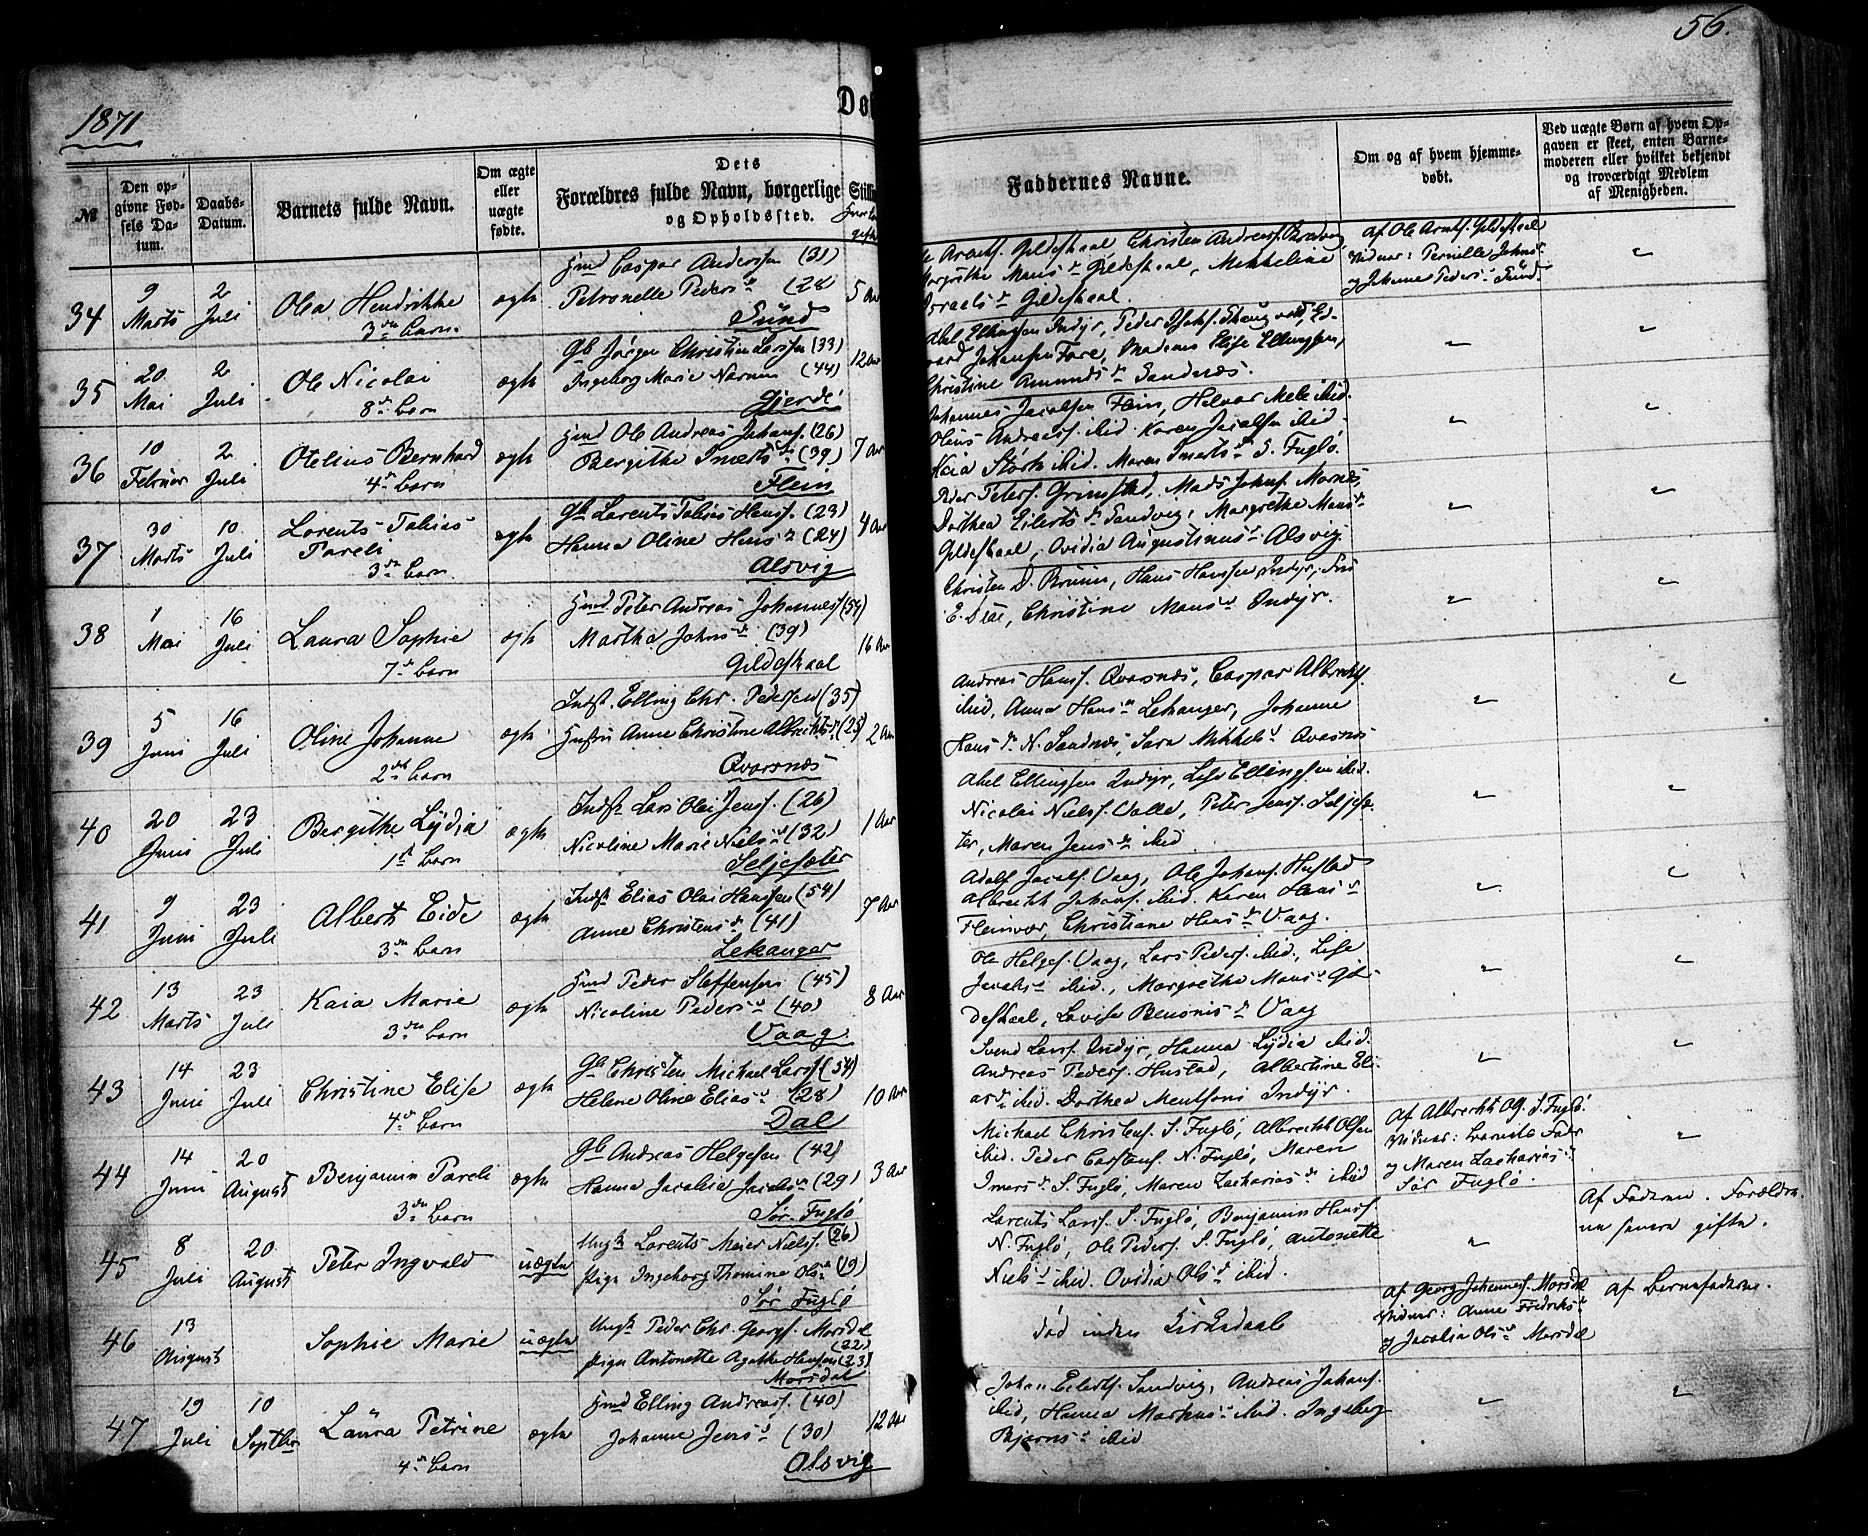 56.
1871
Dø
№
Den opgivne Fødsels Datum.
Daabs-Datum.
Barnets fulde Navn.
Om ægte eller uægte fødte.
Dets Forældres fulde Navn, borgerlige Still
og Opholdssted.
Faddernes Navne.
Om og af hvem hjemmedøbt.
Ved uægte Børn af hvem Opgaven er skeet, enten Barnemoderen eller hvilket bekjendt og troværdigt Medlem af Menigheden.
34
9 Marts
2 Juli
Olea Hendrikke
3die barn.
ægte
Gmd Caspar Andersen (31)
Petronelle Pedersdr (28
Sund
5 Aar
Arntsf. Gildeskaal Christen Andreasf.
Margrethe Mansdr Gildeskaal, Mekkeline
Israelsdr Gildeskaal.
af Ole Arntsf. Gildeskaal
Vidner: Pernille Johnsdr
og Johanne Pedersdr Sund
35
20 Mai
2 Juli
Ole Nicolai
8de barn
ægte
Gb Jørgen Christian Larsen (33)
Ingeborg Marie (44)
Gjerde
12 Aar
Abel Ellingsen Indyr, Peder
Johansen Fore, Madame Elise Ellingsen,
Christine Amundsdr Sandnæs.
36
10 Februar
2 Juli
Otelius Bernhard
4de barn
ægte
Gmd Ole Andreas Johansf. (26)
Bergithe Imertsdr (39)
Flein
7 Aar
Johannes Jacobsen Flein, Helvor Mele ibid.
Oluus Andreasf. ibid. Karen Jacobsen ibid.
Kaia Størk ibid. Maren Imertsdr S. Fuglø.
37
30 Marts
10 Juli
Lorents Tobias
Pareli
3die barn
ægte
Gb Lorents Tobias Hansf. (23)
Hanna Oline Hansdr (24)
Alsvig
4 Aar
Peder Petersf. Grimstad, Mads Johnsf. Mornes
Dorthea Eilertsdr Sandvig, Margrethe Mansdr
Gildeskaal, Ovidia Augustinusdr Alsvig.
38
1 Mai
16 Juli
Laura Sophie
7de barn
ægte
Gmd Peter Andreas Johannesf (54)
Martha Johnsdr (39)
Gildeskaal
16 Aar
Christen D. Bruun, Hans Hansen Indyr,
Christine Mansdr Indyr.
39
5 Juni
16 Juli
Oline Johanne
2det barn
ægte
Indst. Elling Chr. Pedersen (35)
Hustru Anne Christine Albrektsdr (25)
Qvasnæs
2 Aar
Andreas Hansf. Qvasnæs, Caspar Albrechtsf.
ibid, Anna Hansdr Lekanger, Johanne
Hansdr N. Sandnæs, Sara Mikkelsdr Qvasnæs
40
20 Juni
23 Juli
Bergithe Lydia
1ste barn
ægte
Indst Lars Olai Jensf. (26)
Nicoline Marie Nielsdr (32)
Seljesæter
1 Aar
Abel Ellingsen Indyr, Lise Ellingsen ibid.
Nicolai Nielsf. Valle, Peter Jensf. Seljesæ-
ter, Maren Jensdr ibid.
41
9 Juni
23 Juli
Albert Eide
3die barn
ægte
Indst Elias Olai Hansen (54)
Anne Christensdr (41)
Lekanger
7 Aar
Adolf Jacobsf. Vaag, Ole Johansf. Hustad
Albrecht Johansf. ibid. Karen Hansdr
Fleinvær, Christiane Hansdr Vaag.
42
13 Marts
23 Juli
Kaia Marie
3die barn
ægte
Gmd Peder Steffensen (45)
Nicoline Pedersdr (40)
Vaag
8 Aar
Ole Helgesf. Vaag, Lars Pedersf. ibid., Lise
Jacobsdr ibid., Margrethe Mansdr Gil-
deskaal, Lovise Benonisdr Vaag
43
14 Juni
23 Juli
Christine Elise
4de barn
ægte
Gb Christen Michael Larsf (34)
Helene Oline Eliasdr (28)
Dal
10 Aar
Svend Larsf. Indyr, Hanna Lydia ibid.
Andreas Pedersf. Hustad, Albertine Eli-
asdr ibid. Dorthea Mentsoni Indyr.
44
14 Juni
20 August
Benjamin Pareli
3die barn
ægte
Gb Andreas Helgesen (42)
Hanna Jacobia Jacobsdr (29)
Sør-Fuglø
3 Aar
Michael Christensf. S. Fuglø, Albrecht Olsen
ibid. Peder Carstensf. N. Fuglø, Maren
Imersdr S. Fuglø, Maren Zachariasdr ibid
af Albrecht Olsf. S. Fuglø.
Vidner: Barnets Fader
og Maren Zachariasdr
Sør Fuglø.
45
8 Juli
20 August
Peter Ingvald
uægte
Ungk Lorents Meier Nielsf. (26)
Pige Ingeborg Thomine Olsdr (19)
Sør Fuglø
Lorents Larsf. S. Fuglø, Benjamin Hansf.
N. Fuglø, Ole Pedersf. S. Fuglø, Antonette
Nielsdr ibid. Ovidia Olsdr ibid.
Af Faderen. Forældre-
ne senere gifte.
46
13 August
Sophie Marie
uægte
Ungk Peder Chr. Georgsf. Morsdal
(22)
Pige Antonette Agathe Hansen (23)
Morsdal
død inden Kirkedaab
af Georg Johannesf. Morsdal
Vidner: Anne Fredriksdr
og Jacobia Olsdr Morsdal
af Barnefaderen.
47
19 Juli
10 Septbr
Laura Petrine
4de barn
ægte
Gmd Elling Andreasf. (40)
Johanne Jensdr (30)
Alsvig
12 Aar
Johan Eilertsf. Sandvig, Andreas Johansf.
ibid, Hanna Markusdr ibid. Ingeborg
Bjørnsdr ibid